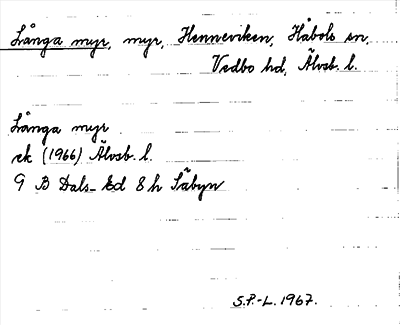 Långa myr, myr, Henneviken, Håbols sn,
Vedbo hd, Älvsb. l.
Långa myr
ek (1966) Älvsb. l.
9 B Dals-Ed 8 h Säbyn
S.P.-L. 1967.